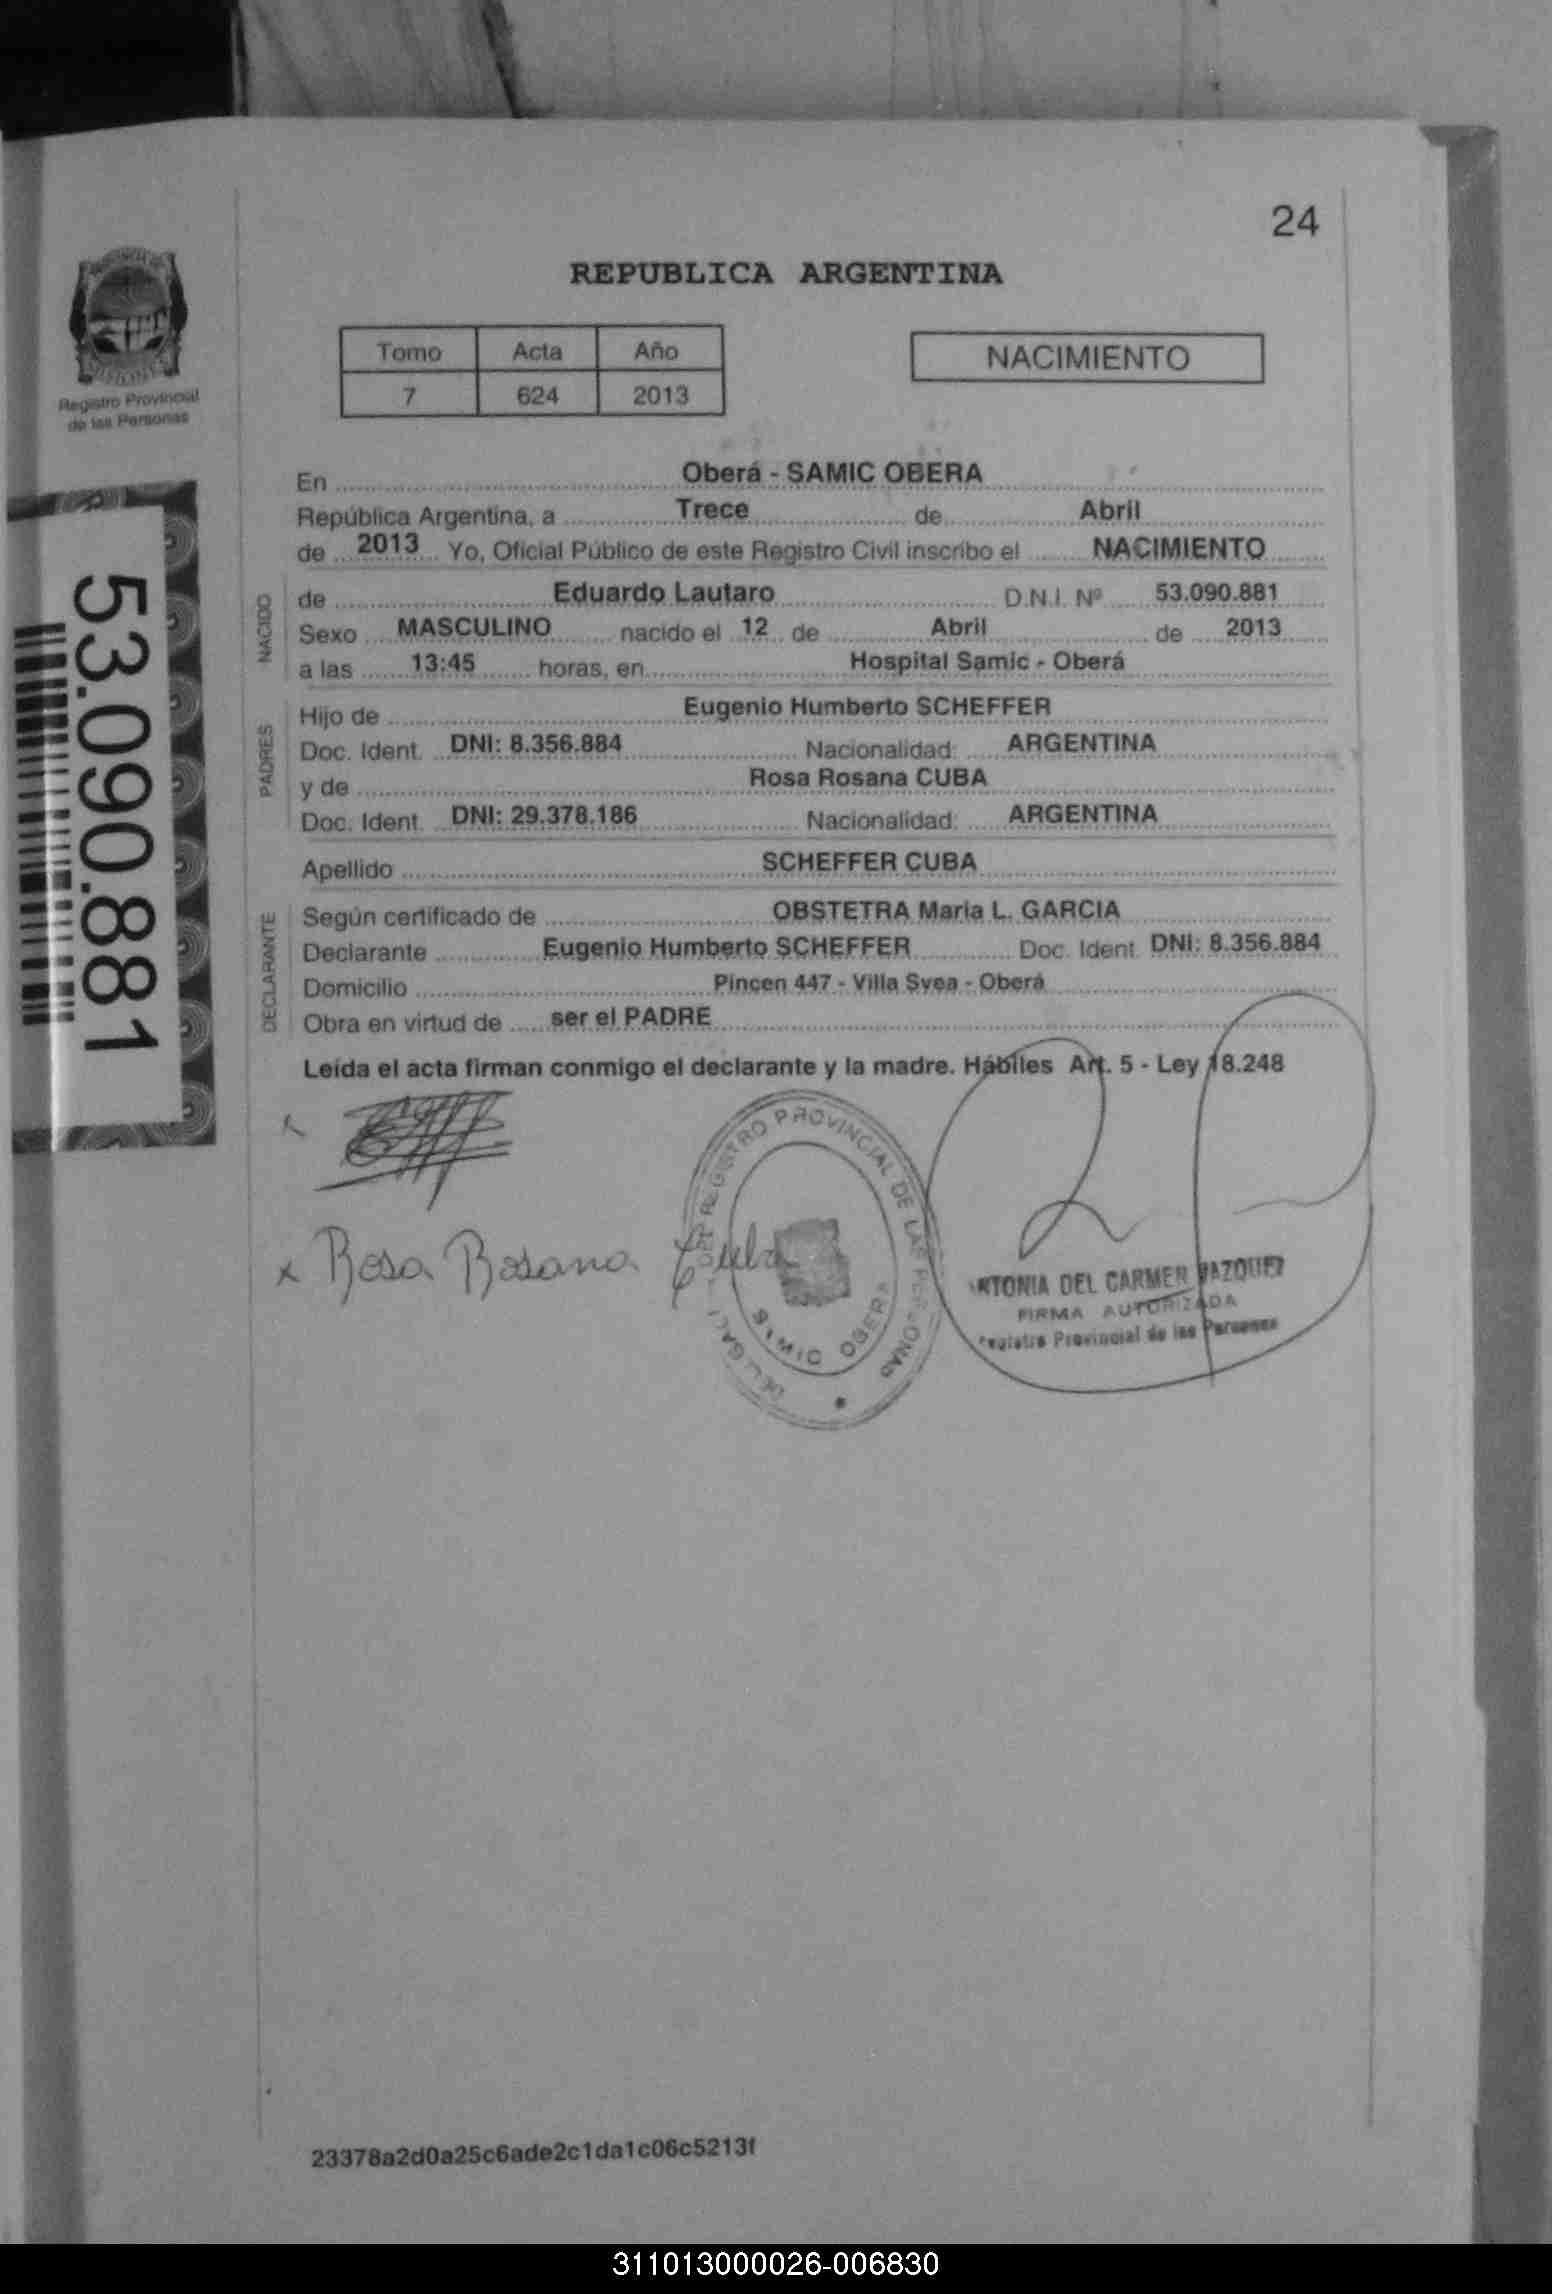 24
REPUBLICA ARGENTINA
Tomo Acta Año
7 624 2013
NACIMIENTO
Registro Provincial
de las Personas
53.090.881
En Oberá - SAMIC OBERA
República Argentina, a Trece de Abril
de 2013 Yo, Oficial Público de este Registro Civil inscribo el NACIMIENTO
NACIDO
de Eduardo Lautaro D.N.I. Nº 53.090.881
Sexo MASCULINO nacido el 12 de Abril de 2013
a las 13:45 horas, en Hospital Samic - Oberá
PADRES
Hijo de Eugenio Humberto SCHEFFER
Doc. Ident. DNI: 8.356.884 Nacionalidad: ARGENTINA
y de Rosa Rosana CUBA
Doc. Ident. DNI: 29.378.186 Nacionalidad: ARGENTINA
Apellido SCHEFFER CUBA
DECLARANTE
Según certificado de OBSTETRA Maria L. GARCIA
Declarante Eugenio Humberto SCHEFFER Doc. Ident. DNI: 8.356.884
Domicilio Pincen 447 - Villa Svea - Oberá
Obra en virtud de ser el PADRE
Leída el acta firman conmigo el declarante y la madre. Hábiles Art. 5 - Ley 18.248
x Rosa Rosana Cuba
DEL REGISTRO PROVINCIAL DE LAS PERSONAS
SAMIC OBERA
DEL CARMEN VAZQUEZ
FIRMA AUTORIZADA
Registro Provincial de las Personas
23378a2d0a25c6ade2c1da1c06c5213f
311013000026-006830